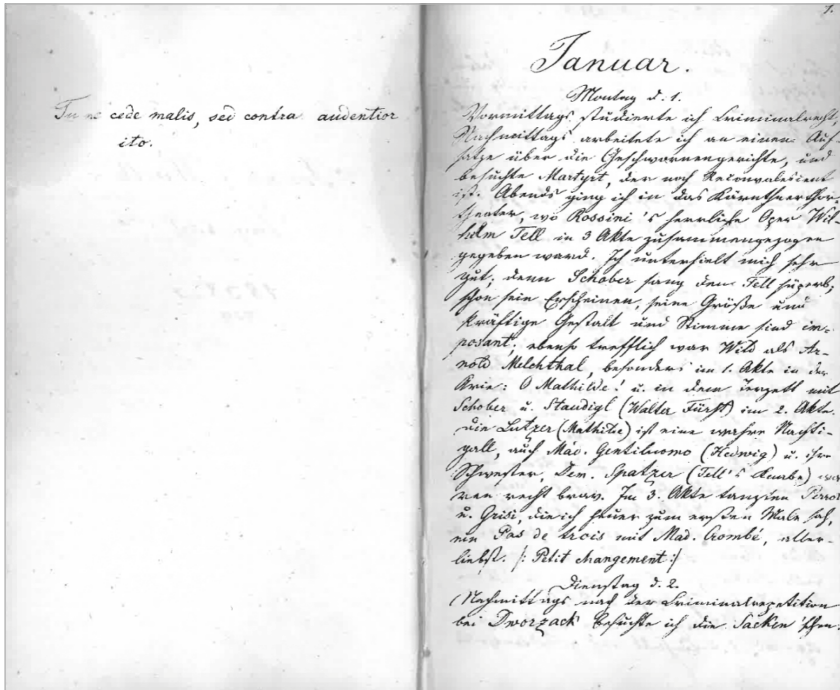 Tu ne cede malis, sed contra audentior
ito.
7.
Januar.
Montag d. 1.
Vormittags studierte ich Criminalrecht,
Nachmittags arbeitete ich an einen Auf-
satze über die Geschwornengerichte, und
besuchte Martyrt, der noch Reconvalescent
ist. Abends ging ich in das Kärnthnerthor-
theater, wo Rossini's herrliche Oper Wil-
helm Tell in 3 Akte zusammengezogen
gegeben ward. Ich unterhielt mich sehr
gut, denn Schober sang den Tell superb,
schon sein Erscheinen, seine Größe und
kräftige Gestalt und Stimme sind im-
posant; ebenso trefflich war Wild als Ar-
nold Melchthal, besonders im 1. Akte in der
Arie: O Mathilde! u. in dem Terzett mit
Schober u. Staudigl (Walter Fürst) im 2. Akte.
Die Lutzer (Mathilde) ist eine wahre Nachti-
gall, auch Mad. Gentiluomo (Hedwig) u. ihre
Schwester, Dem. Spatzer (Tell's Knabe) wa-
ren recht brav. Im 3. Akte tanzten Perrot
u. Grisi, die ich heuer zum ersten Male sah,
ein Pas de trois mit Mad. Crombé, aller-
liebst. /: Petit changement :/
Dienstag d. 2.
Nachmittags nach der Criminalrepetition
bei Dworzack besuchte ich die Sacken'schen.